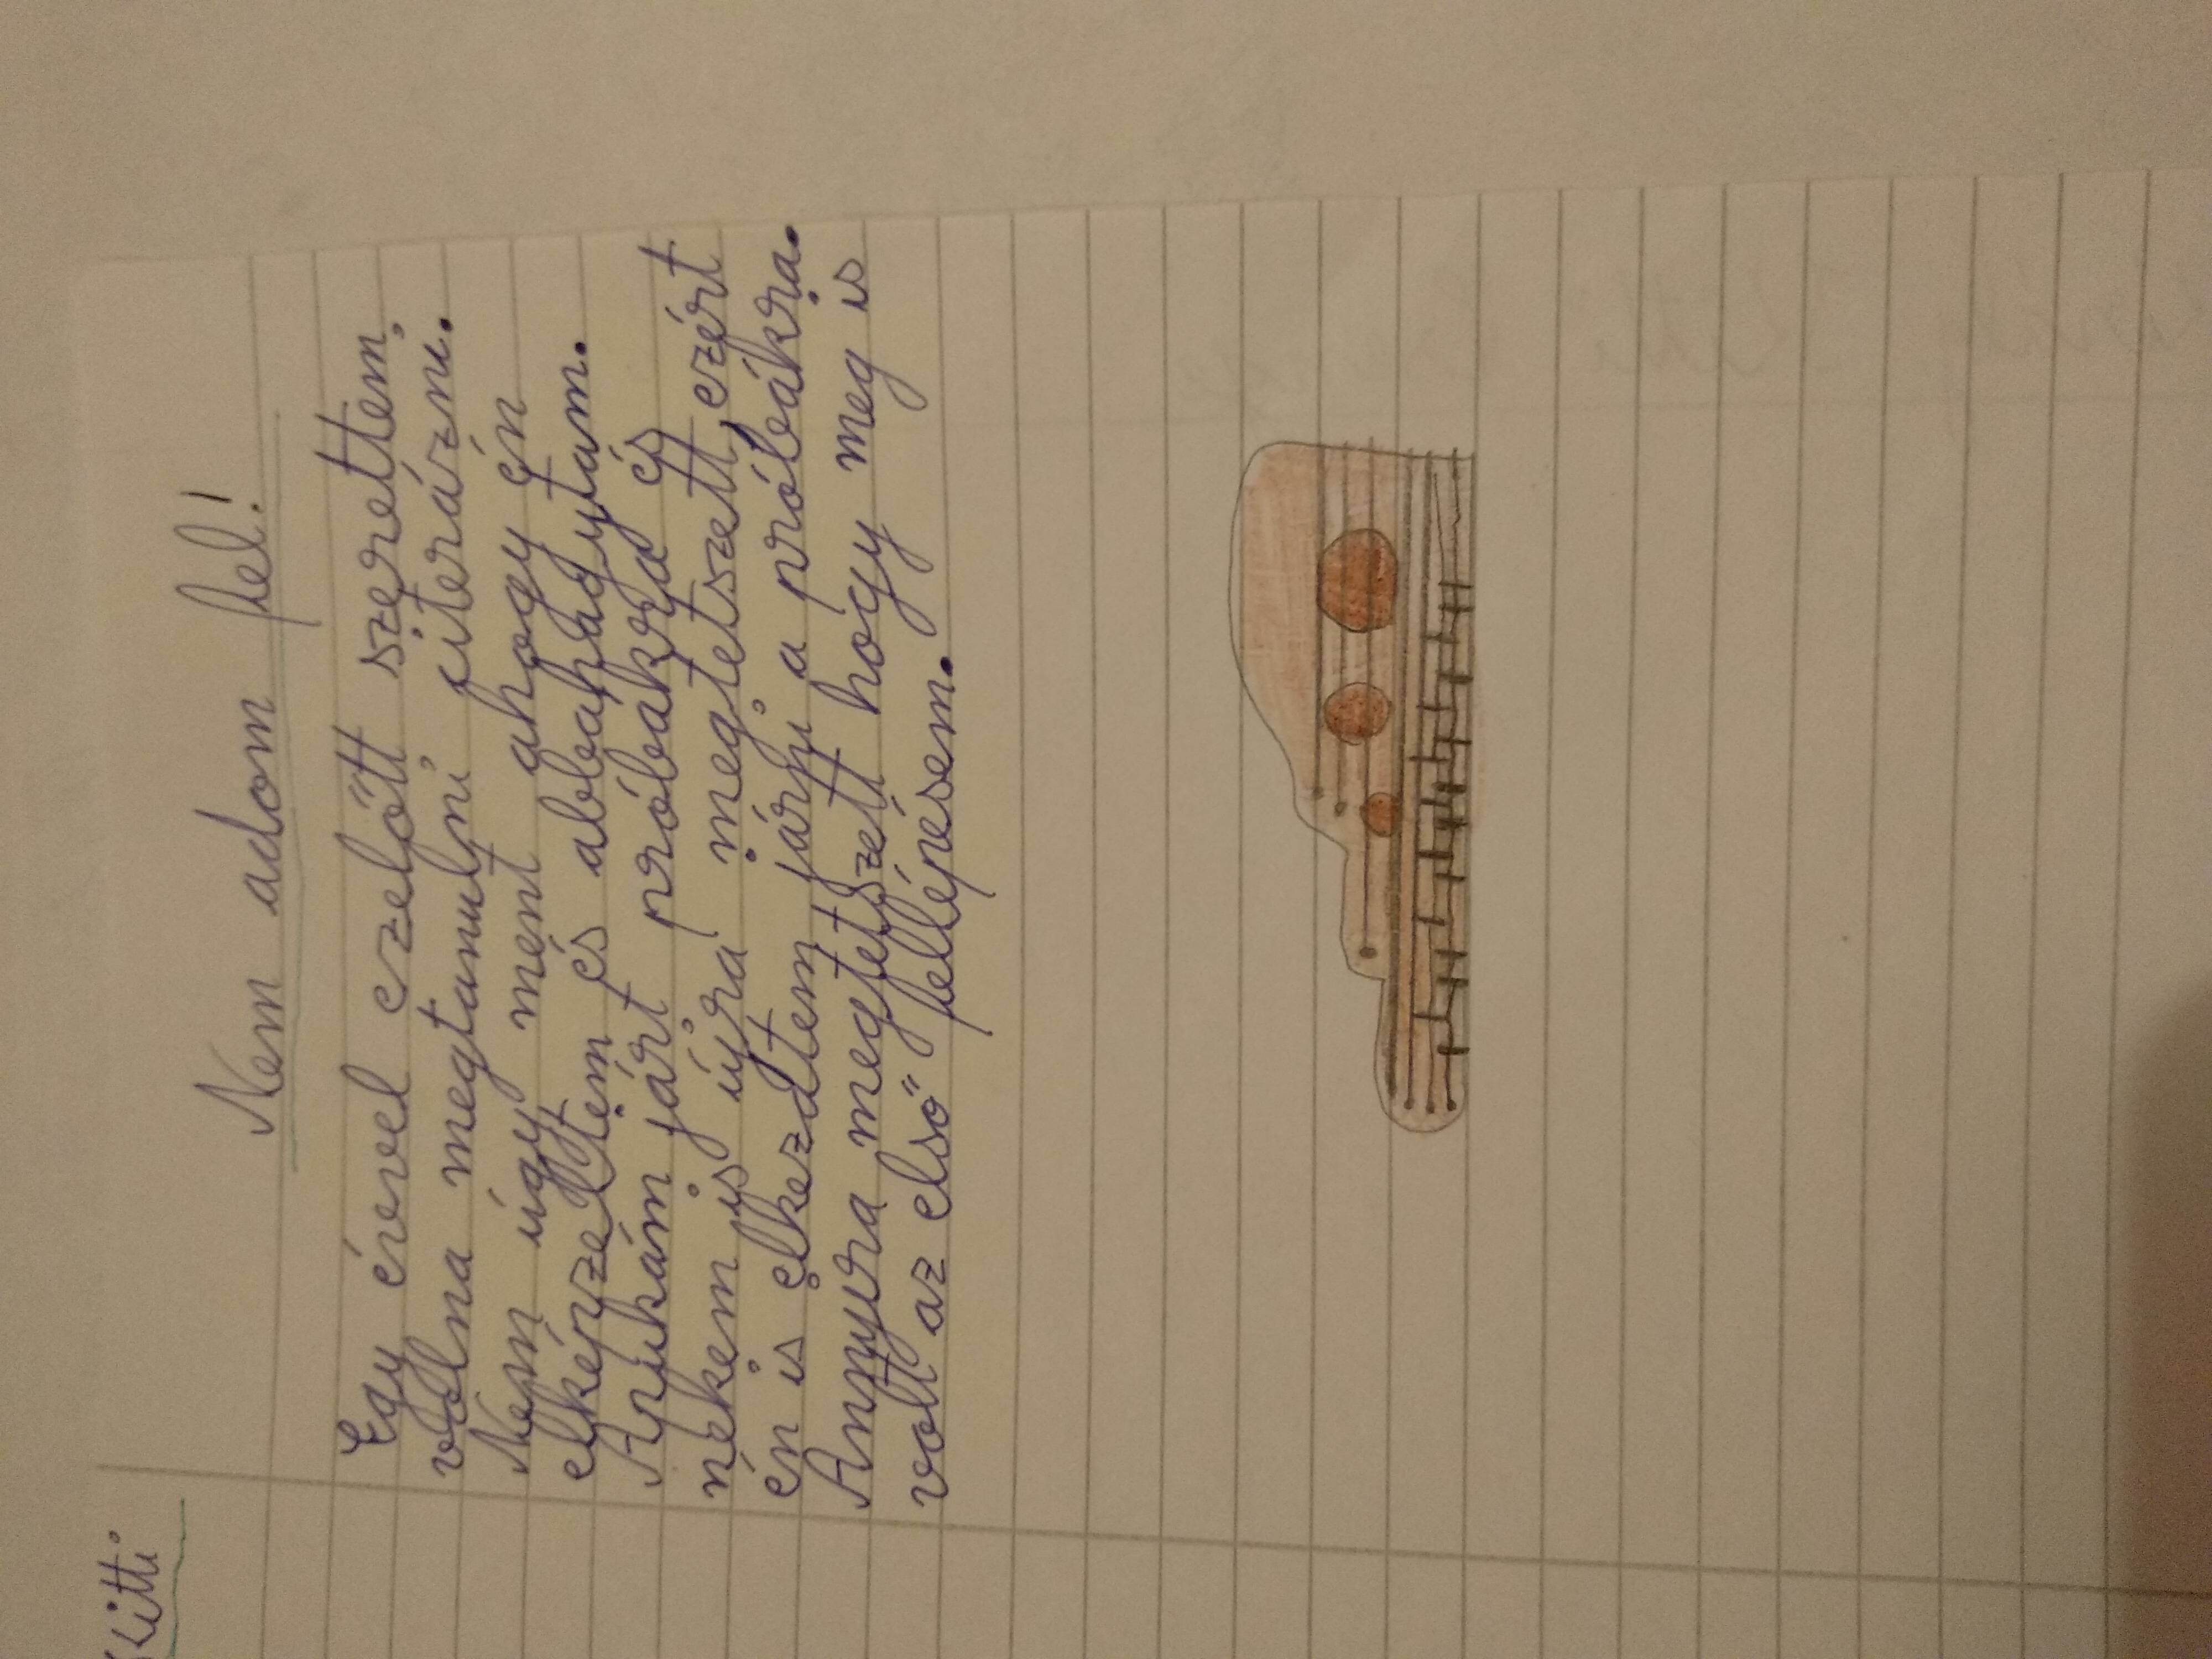 Kitti
Nem adom fel!
Egy évvel ezelőtt szerettem
volna megtanulni citerázni.
Nem úgy ment ahogy én
elképzeltem és abbahagytam.
Apukám járt próbákra és
nekem is újra megtetszett, ezért
én is elkezdtem járni a próbákra.
Annyira megtetszett hogy meg is
volt az első fellépésem.